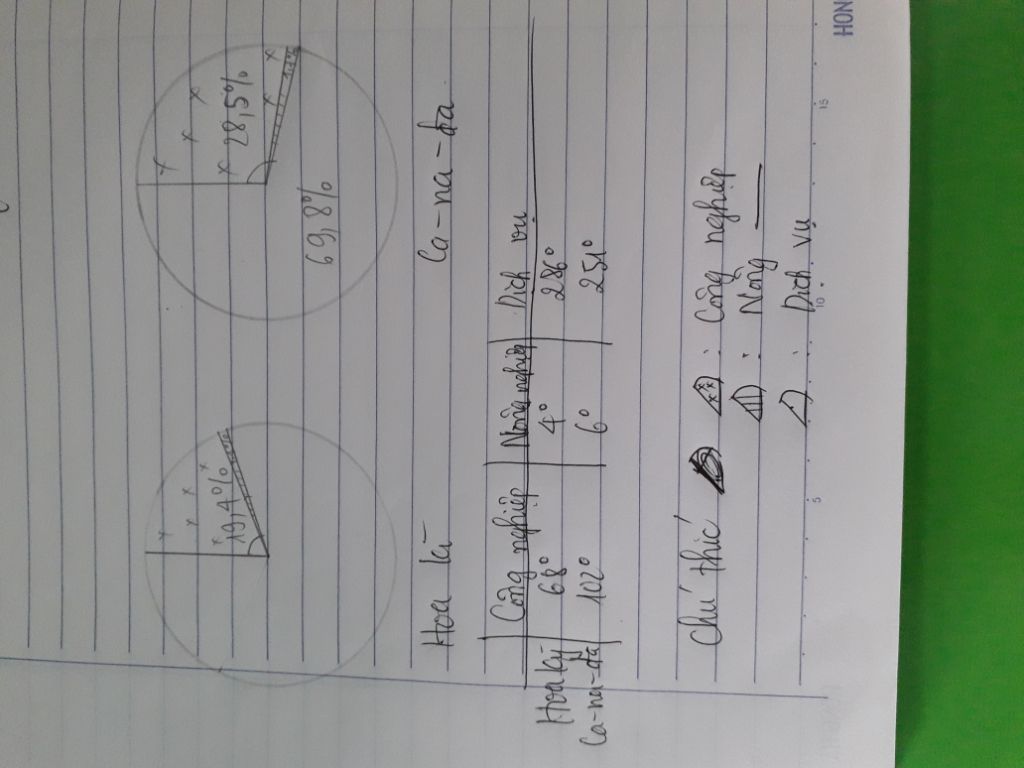 19,4%
28,5%
69,8%
Hoa kì
Ca-na-đa
Công nghiệp Nông nghiệp Dịch vụ
Hoa kỳ 68° 4° 286°
Ca-na-đa 102° 6° 251°
Chú thíc
: Công nghiệp
: Nông
: Dịch vụ
5 10 15
HON